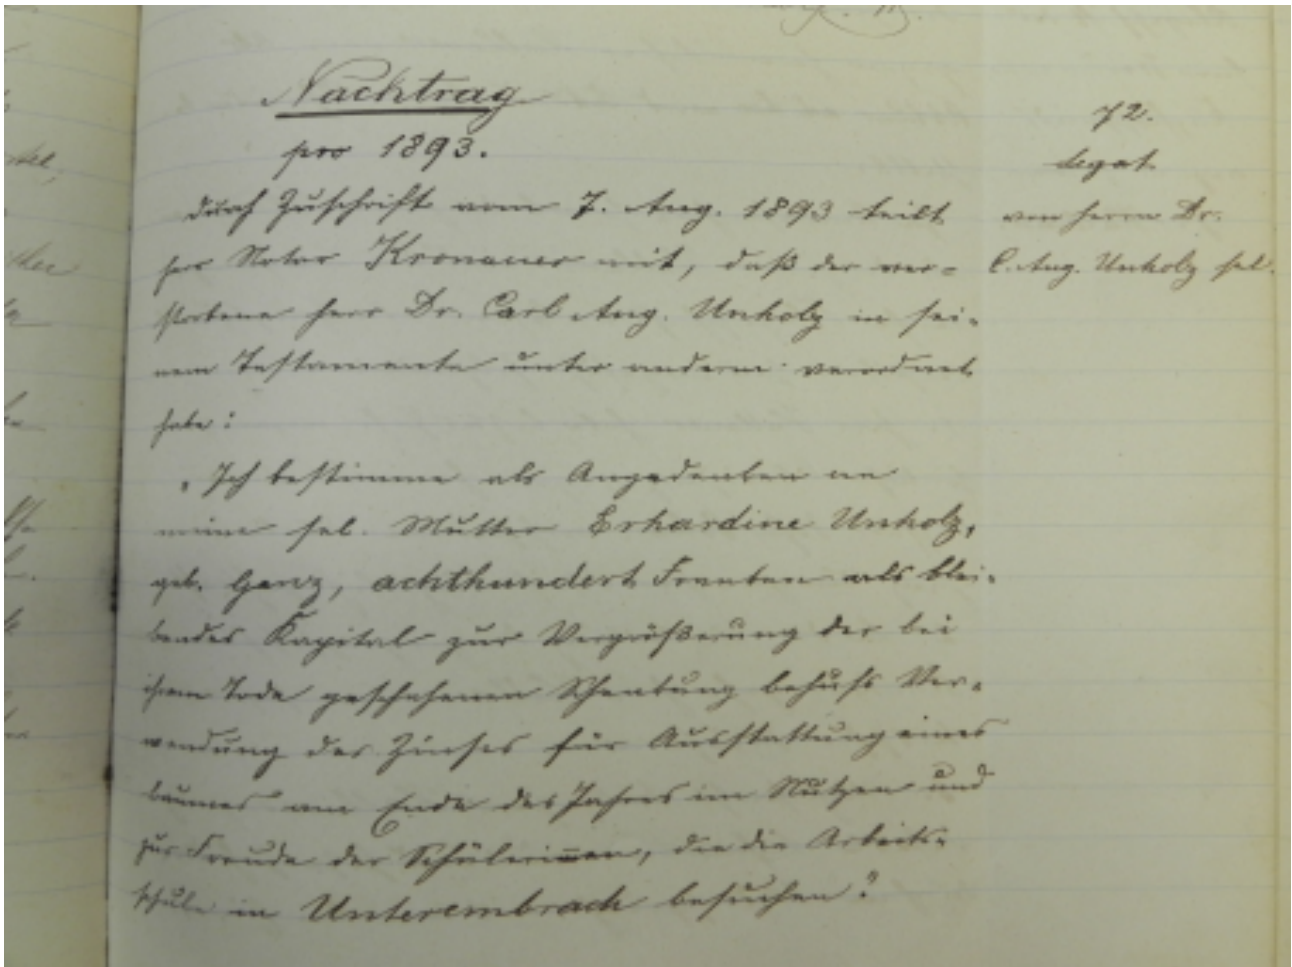 Nachtrag
pro 1893.
Durch Zuschrift vom 7. Aug. 1893 teilt
Herr Notar Kronauer mit, daß der ver-
storbene Herr Dr. Carl Aug. Unholz in sei-
nem Testamente unter anderm verordnet
habe:
„Ich bestimme als Angedenken an
meine sel. Mutter Erhardine Unholz,
geb. Ganz, achthundert Franken als blei-
bendes Kapital zur Vergrößerung der bei
ihrem Tode geschehenen Schenkung behufs Ver-
wendung des Zinses für Ausstattung eines
Baumes am Ende des Jahres im Nutzen und
zur Freude der Schülerinnen, die die Arbeits-
schule in Unterembrach besuchen."
72.
Legat
von Herrn Dr.
C. Aug. Unholz sel.